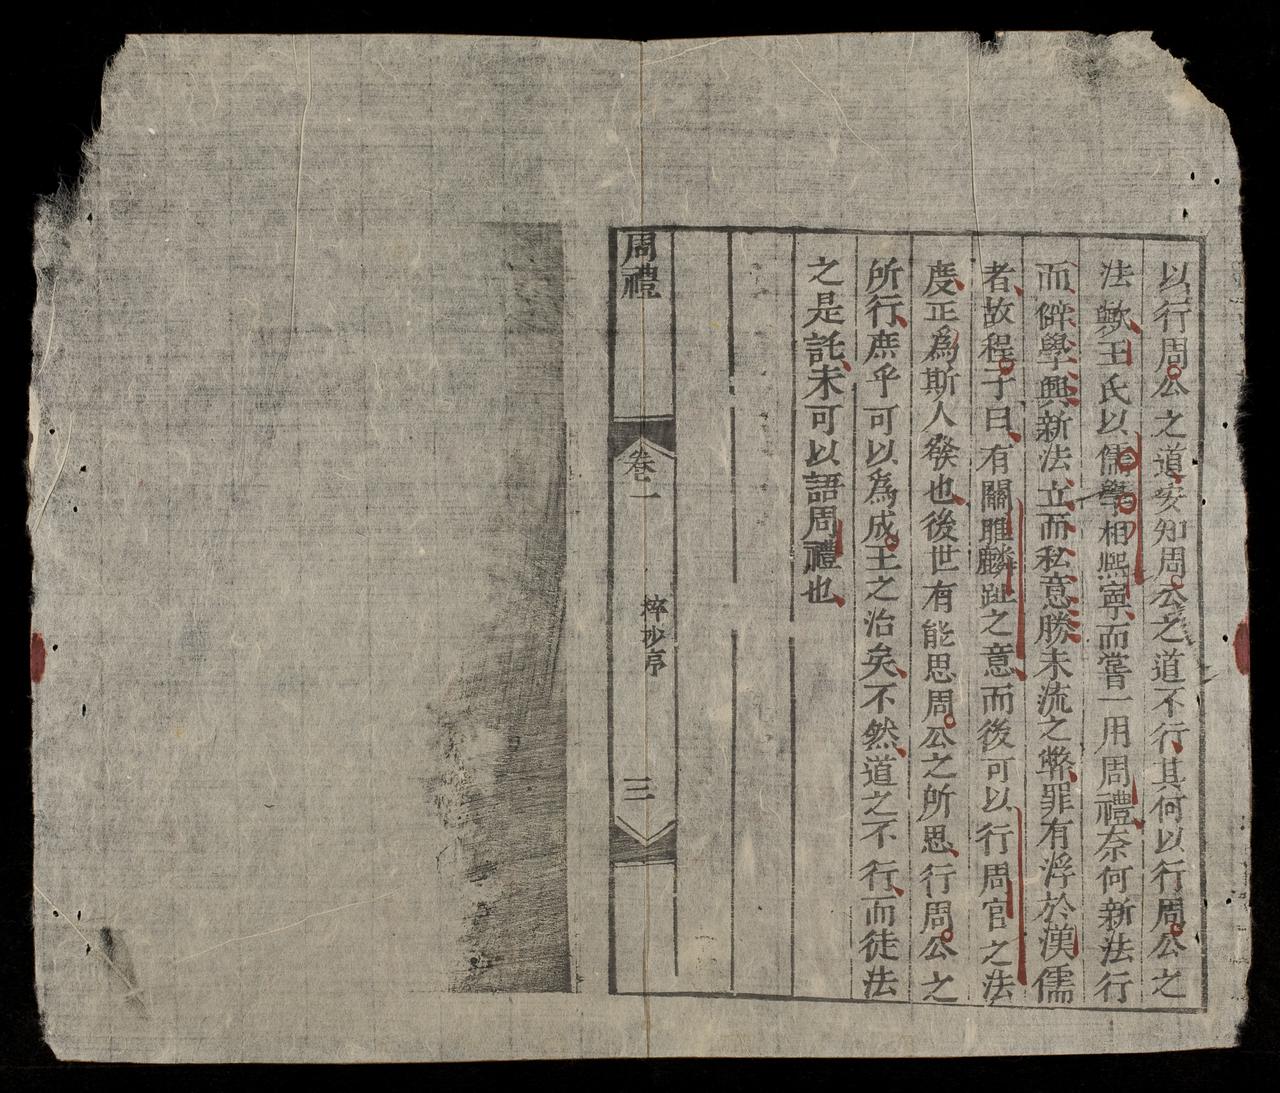 以行周公之道安知周公之道不行其何以行周公之
法歟王氏以儒學相熙寧而嘗一用周禮奈何新法行
而僻學興新法立而私意勝末流之弊罪有浮於漢儒
者故程子曰有關雎麟趾之意而後可以行周官之法
度正爲斯人發也後世有能思周公之所思行周公之
所行庶乎可以爲成王之治矣不然道之不行而徒法
之是託未可以語周禮也
周禮
卷一
梓抄序
三